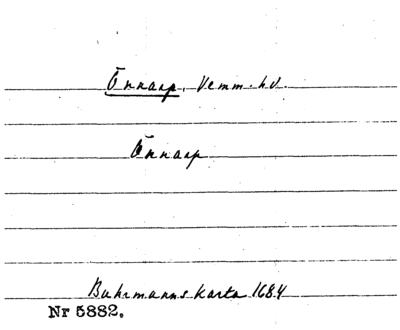 Önnarp, Vemm. hd.
Önnarp
Buhrmanns karta 1684
Nr 5882.